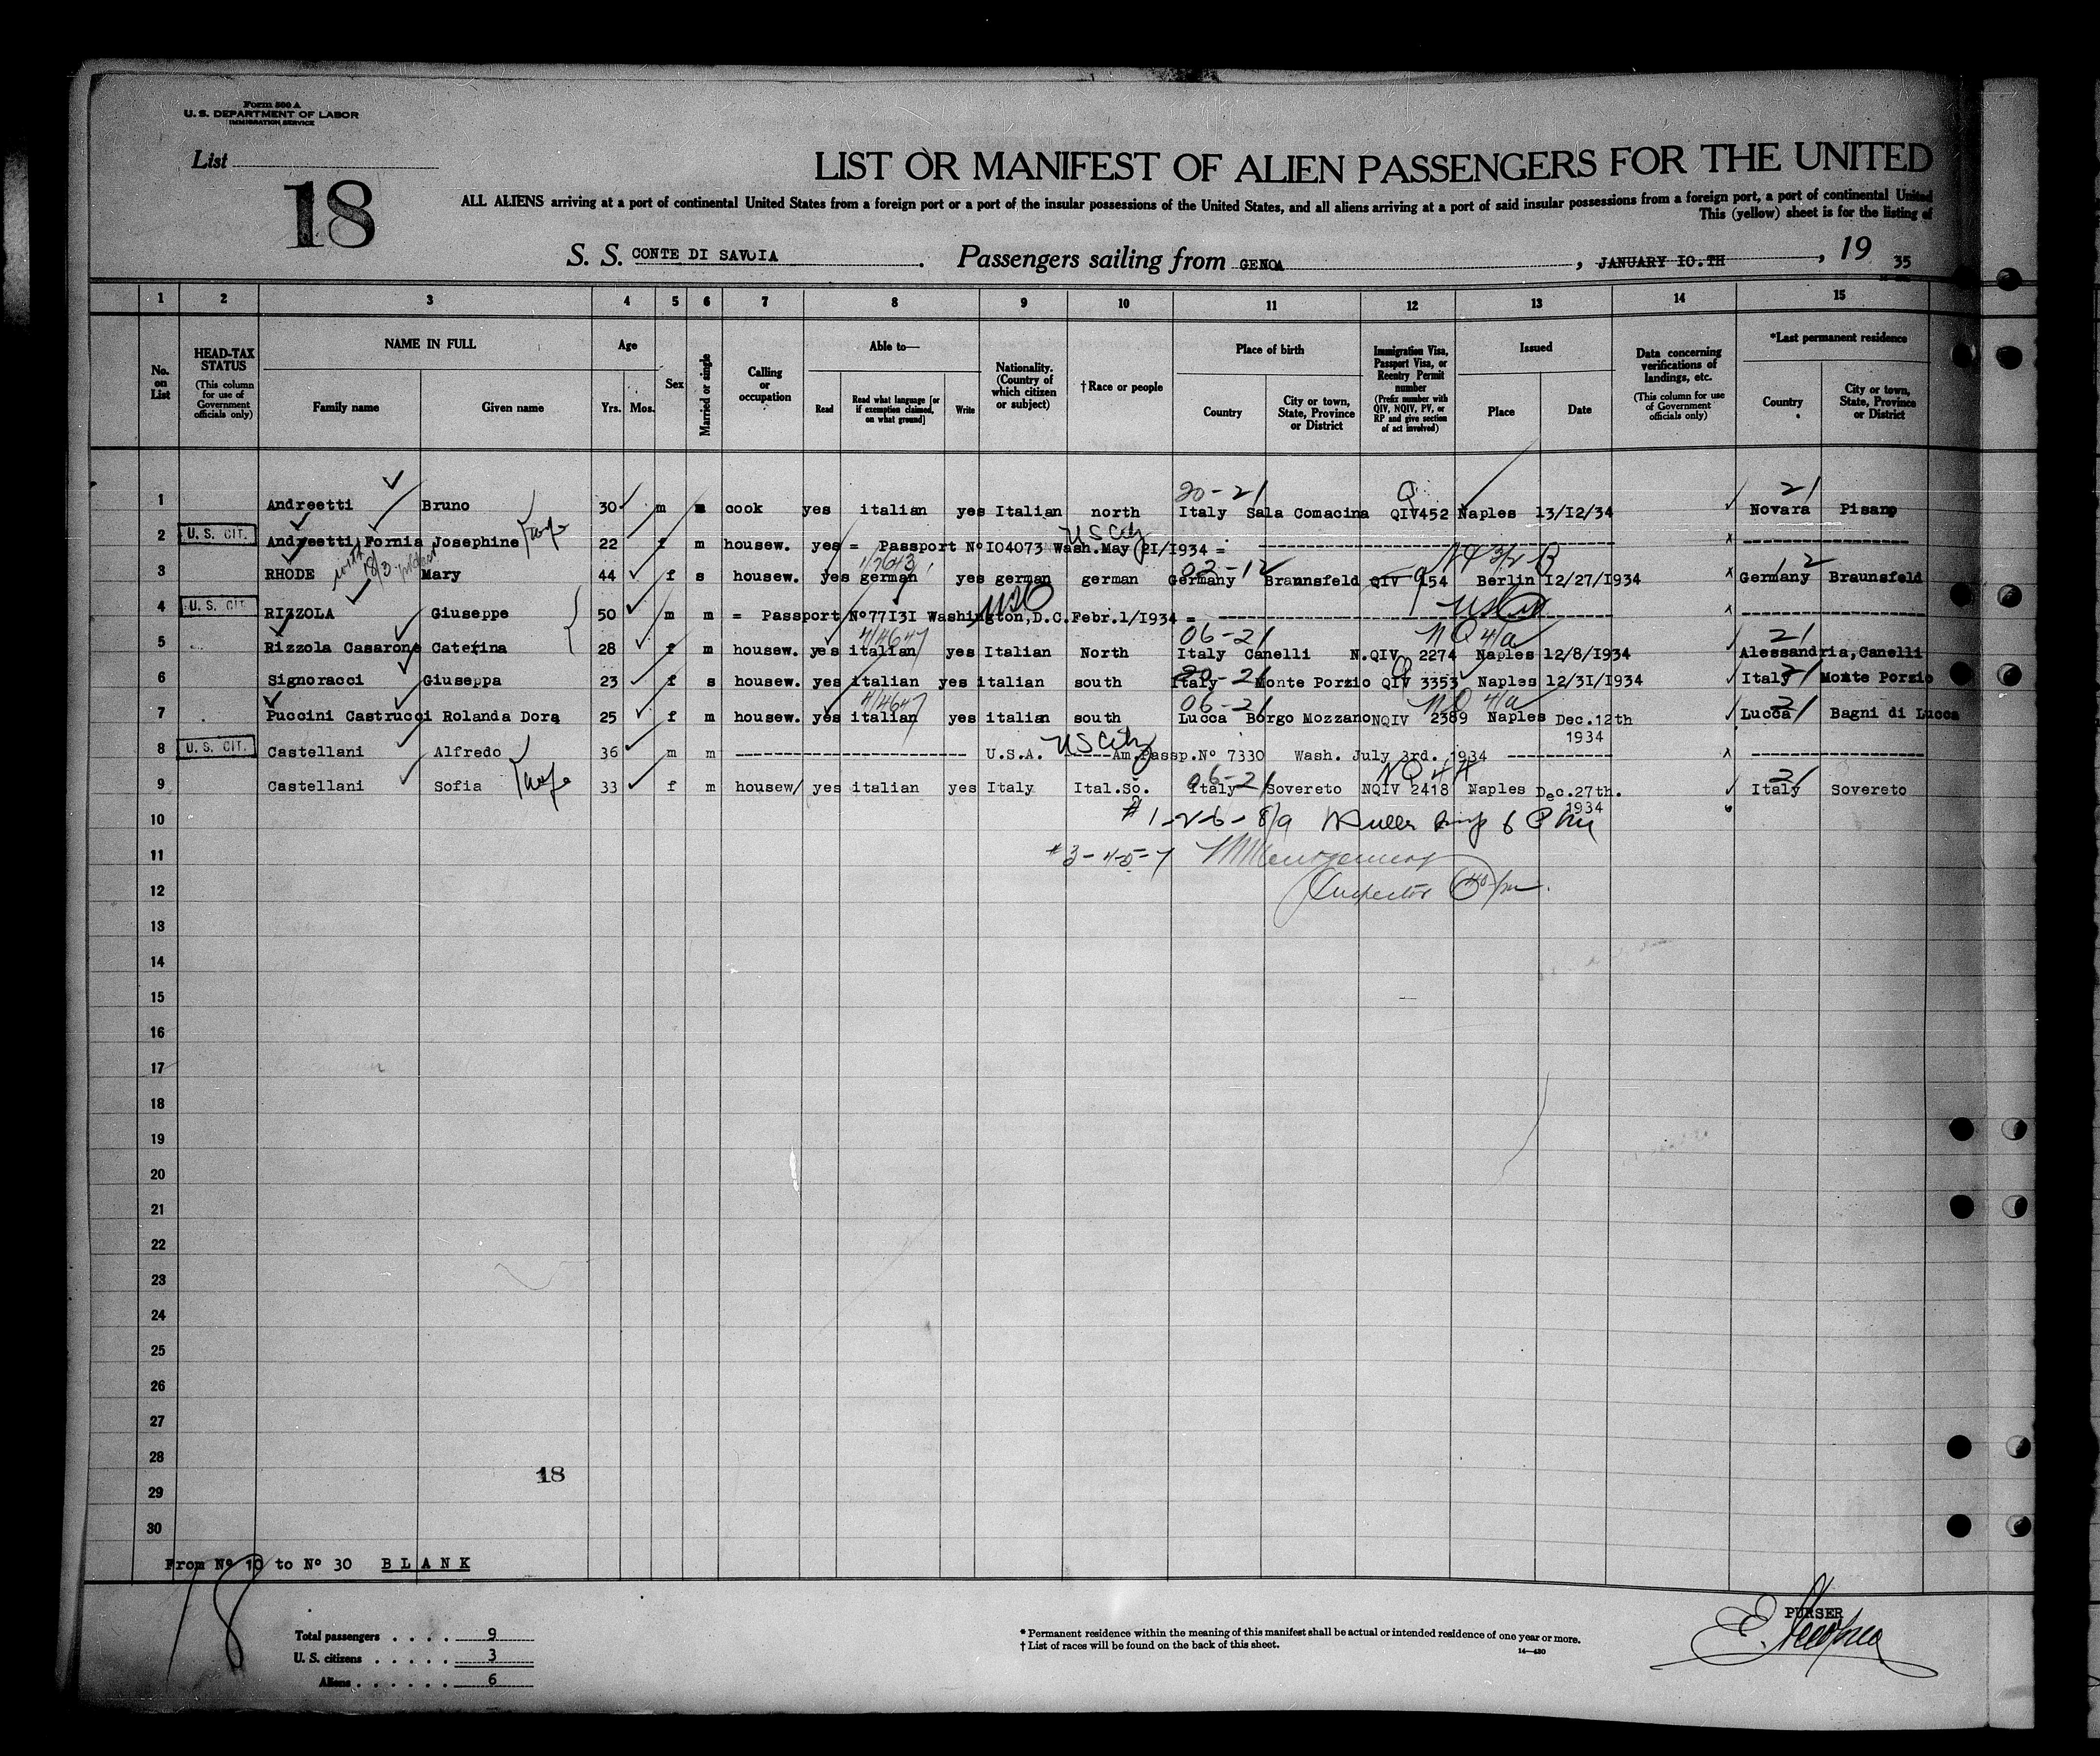 Form 500 A
U. S. DEPARTMENT OF LABOR
IMMIGRATION SERVICE
List
18
LIST OR MANIFEST OF ALIEN PASSENGERS FOR THE UNITED
ALL ALIENS arriving at a port of continental United States from a foreign port or a port of the insular possessions of the United States, and all aliens arriving at a port of said insular possessions from a foreign port, a port of continental United
This (yellow) sheet is for the listing of
S. S. CONTE DI SAVOIA. Passengers sailing from GENOA, JANUARY IO.TH, 19 35
1 2 3 4 5 6 7 8 9 10 11 12 13 14 15
No. on List
HEAD-TAX STATUS (This column for use of Government officials only)
NAME IN FULL Family name Given name
Age Yrs. Mos.
Sex
Married or single
Calling or occupation
Able to— Read Read what language [or if exemption claimed, on what ground] Write
Nationality. (Country of which citizen or subject)
†Race or people
Place of birth Country City or town, State, Province or District
Immigration Visa, Passport Visa, or Reentry Permit number (Prefix number with QIV, NQIV, PV, or RP and give section of act involved)
Issued Place Date
Data concerning verifications of landings, etc. (This column for use of Government officials only)
*Last permanent residence Country City or town, State, Province or District
20-21 Q 21
1 Andreetti Bruno 30 m m cook yes italian yes Italian north Italy Sala Comacina QIV452 Naples 13/I2/34 Novara Pisano
US City
2 U. S. CIT. Andreetti Fornia Josephine wife 22 f m housew. yes = Passport NºI04073 Wash.May 21/1934 =
with 18/3
3 RHODE Mary 44 f s housew. yes german yes german german Germany Braunsfeld QIV 154 Berlin I2/27/I934 Germany Braunsfeld
4 U. S. CIT. RIZZOLA Giuseppe 50 m m = Passport Nº77I3I Washington,D.C.Febr.1/I934 =
06-21 NQ 4/a 21
5 Rizzola Casarone Caterina 28 f m housew. yes italian yes Italian North Italy Canelli N.QIV 2274 Naples 12/8/I934 Alessandria,Canelli
6 Signoracci Giuseppa 23 f s housew. yes italian yes italian south Italy Monte Porzio QIV 3353 Naples I2/3I/I934 Italy Monte Porzio
06-21 NQ 4/a 21
7 Puccini Castrucci Rolanda Dora 25 f m housew. yes italian yes italian south Lucca Borgo MozzanoNQIV 2389 Naples Dec.12th 1934 Lucca Bagni di Lucca
8 U. S. CIT. Castellani Alfredo 36 m m U.S.A. US City Am.Passp.Nº 7330 Wash. July 3rd. 1934
06-21 NQ 4A 21
9 Castellani Sofia wife 33 f m housew/ yes italian yes Italy Ital.So. Italy Sovereto NQIV 2418 Naples Dec.27th. 1934 Italy Sovereto
10 #1-2-6-8/9
11 #3-4-5-7 Montgomery
12 Inspector
13
14
15
16
17
18
19
20
21
22
23
24
25
26
27
28
18
29
30
From Nº 10 to Nº 30 BLANK
18
Total passengers . . . . 9
U. S. citizens . . . . . 3
Aliens . . . . . . 6
* Permanent residence within the meaning of this manifest shall be actual or intended residence of one year or more.
† List of races will be found on the back of this sheet.
14—430
PURSER